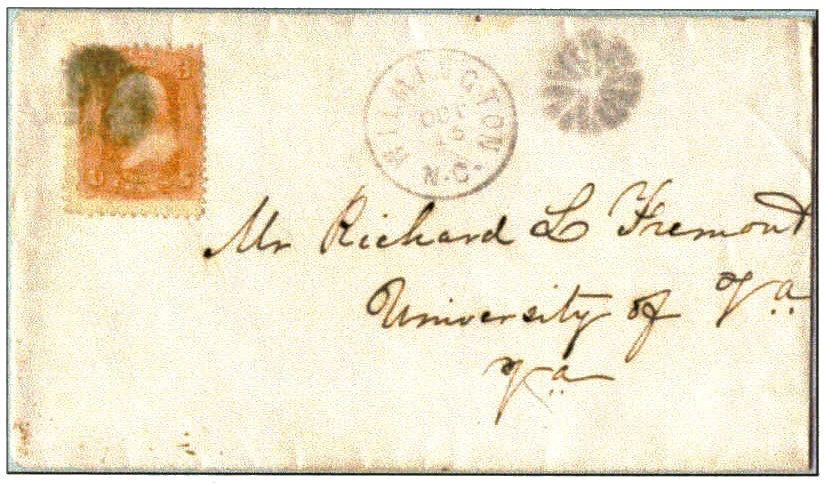 WILMINGTON N.C.
OCT
Mr Richard L Fremont
University of Va
Va